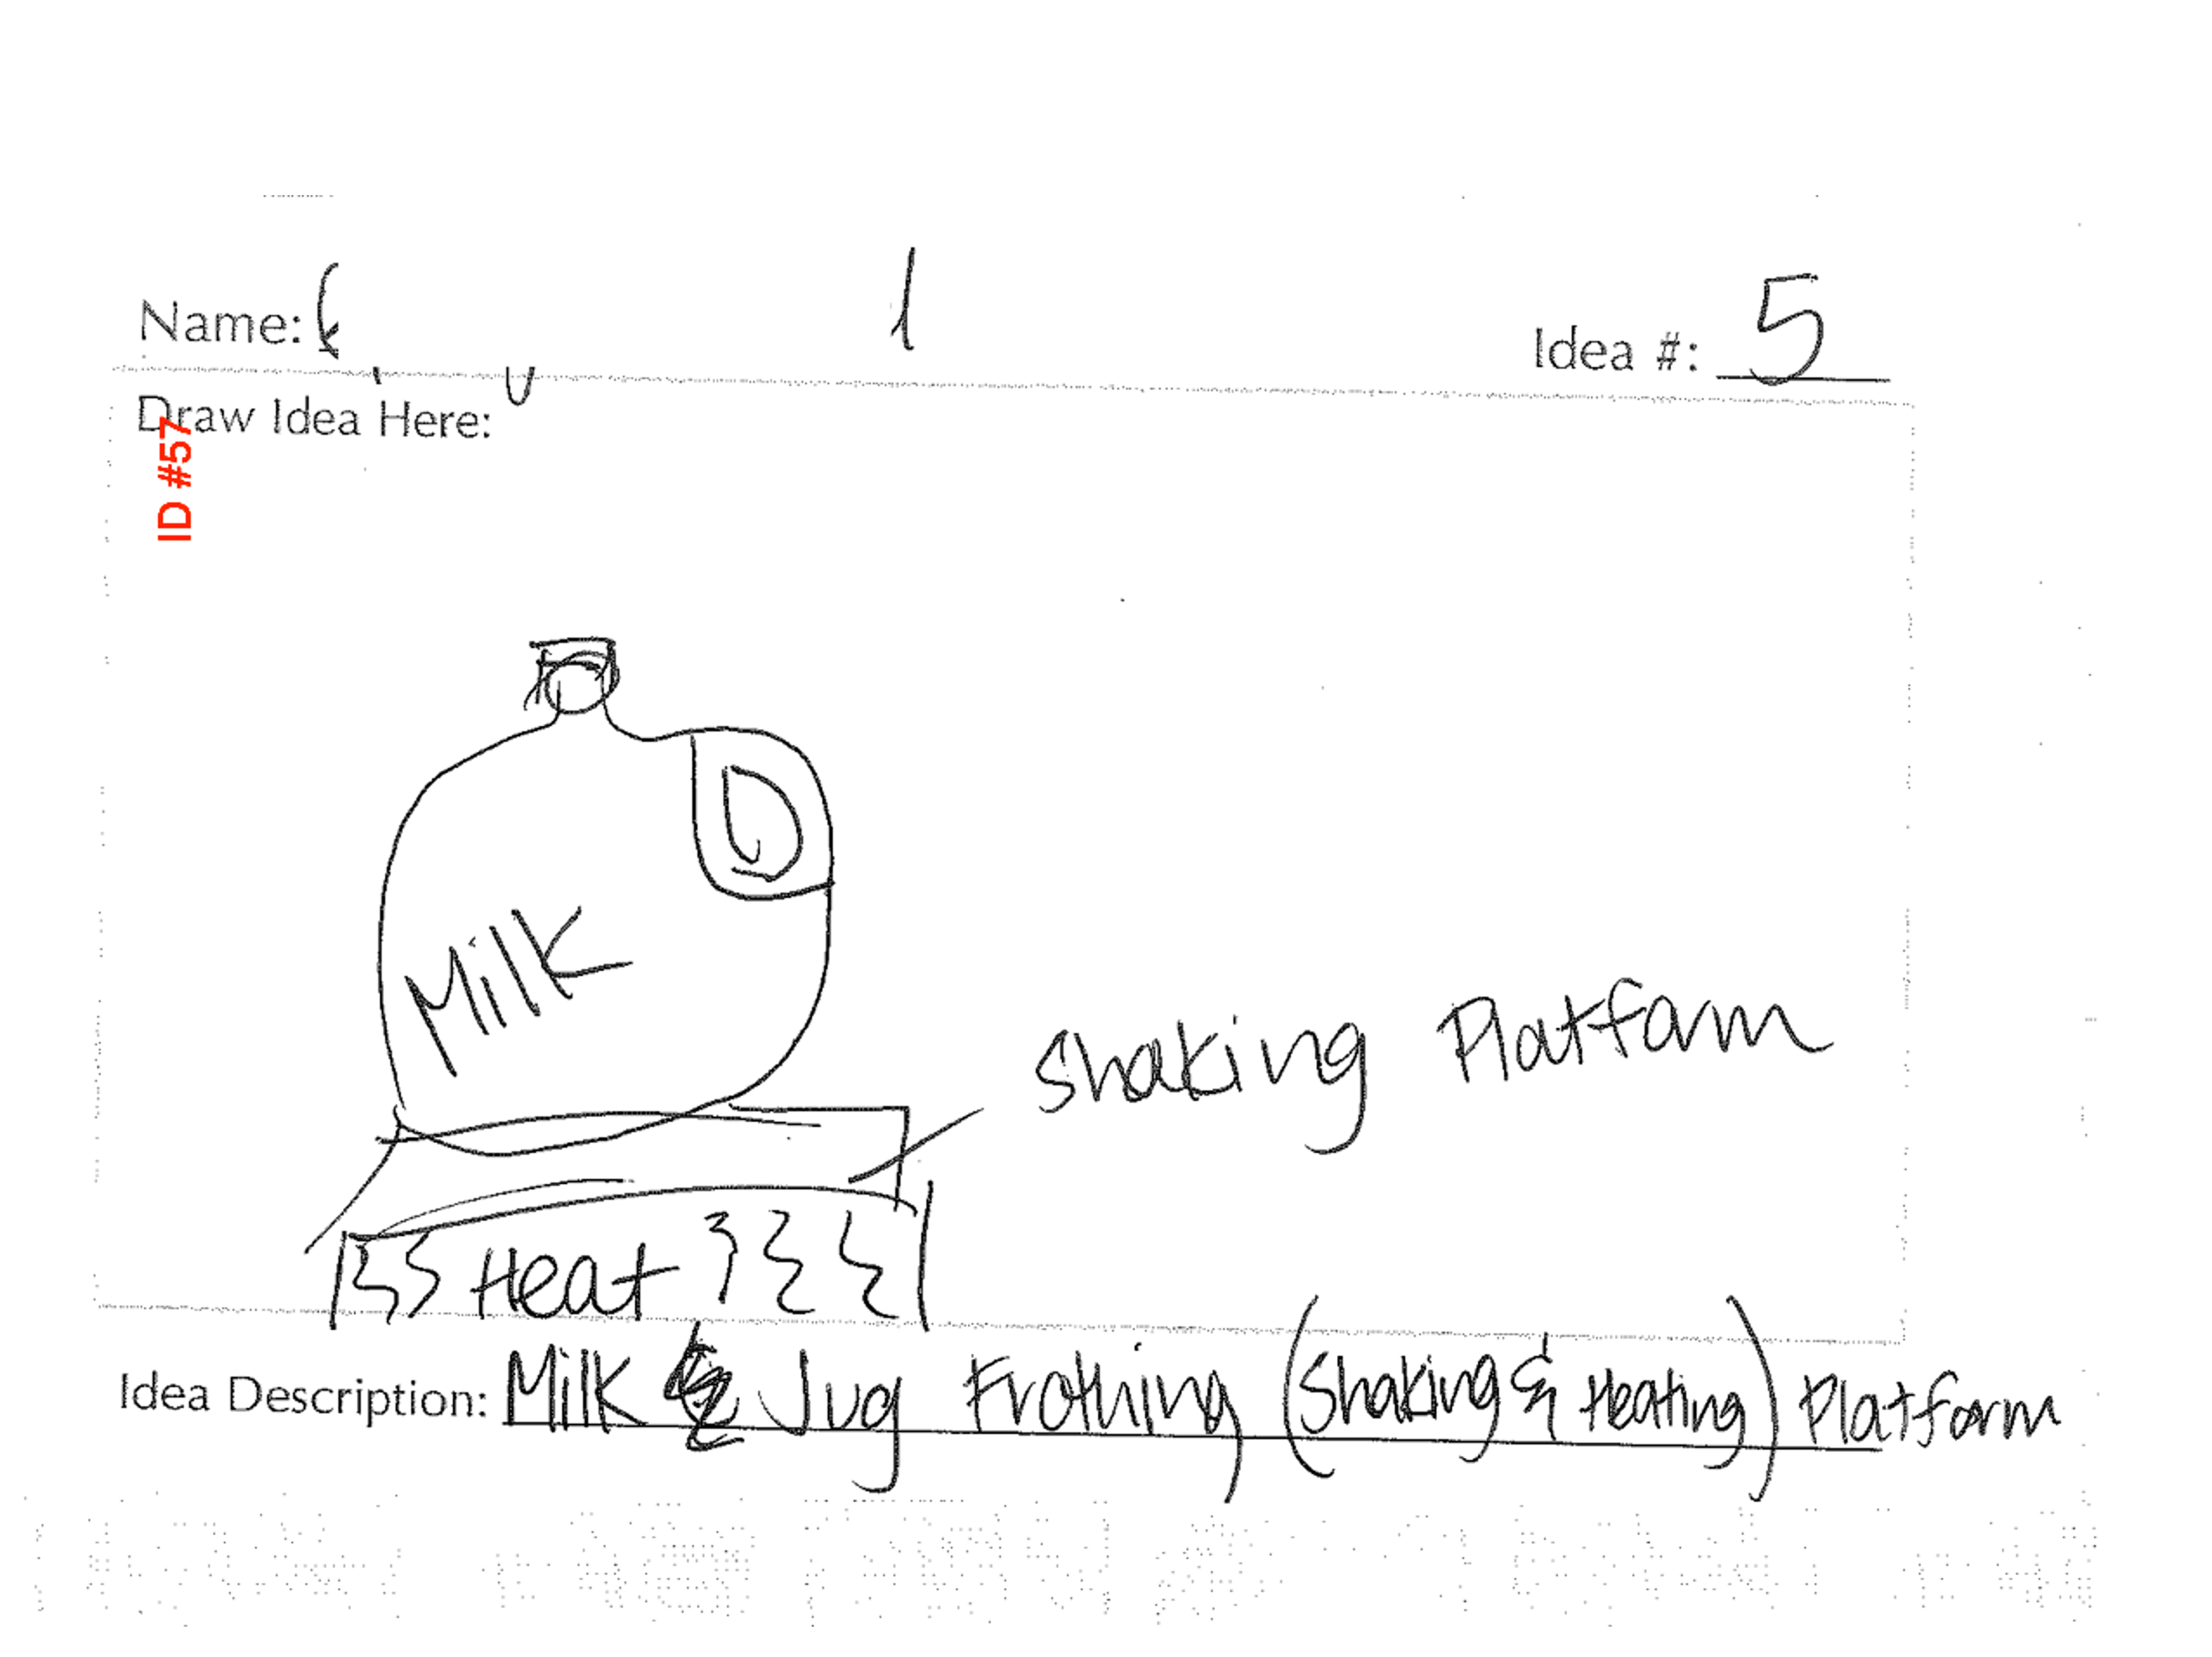 Name:
Idea #: 5
Draw Idea Here:
ID #57
Milk
Shaking Platform
Heat
Idea Description: Milk Jug Frothing (Shaking & Heating) Platform